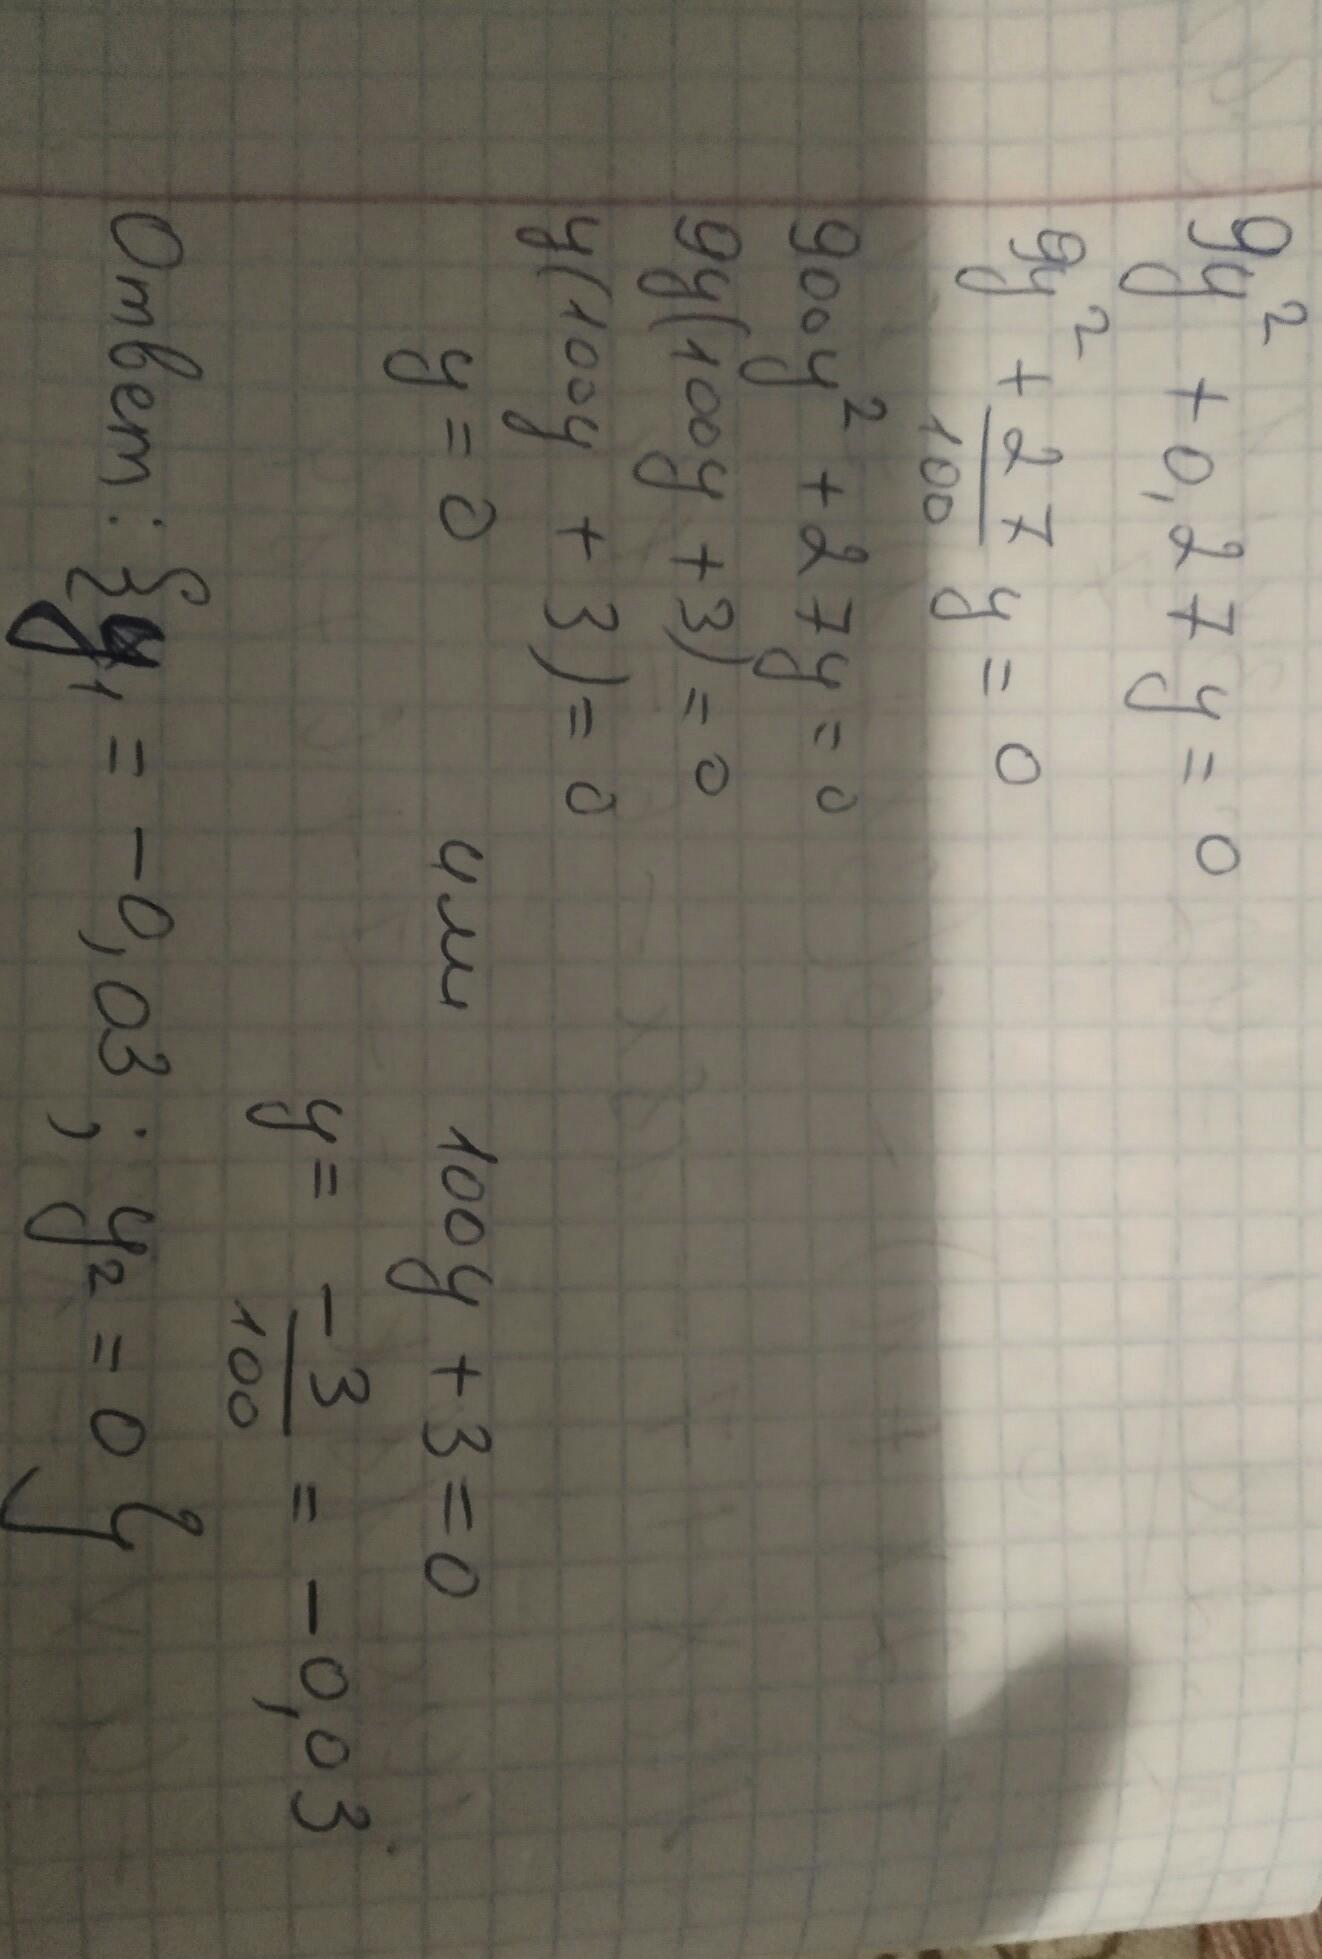 9y² + 0,27y = 0
9y² + 27/100 y = 0
900y² + 27y = 0
9y(100y + 3) = 0
y(100y + 3) = 0
y = 0 или 100y + 3 = 0
y = -3/100 = -0,03
Ответ: {y₁ = -0,03; y₂ = 0}